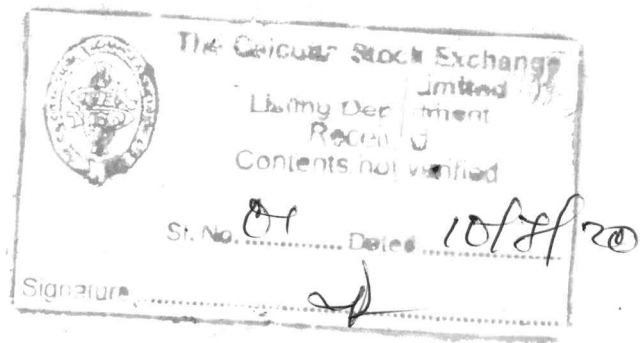 The Calcutta Stock Exchange
Limited
Listing Department
Received
Contents not verified
Sr. No. 01 Dated 10/8/20
Signature